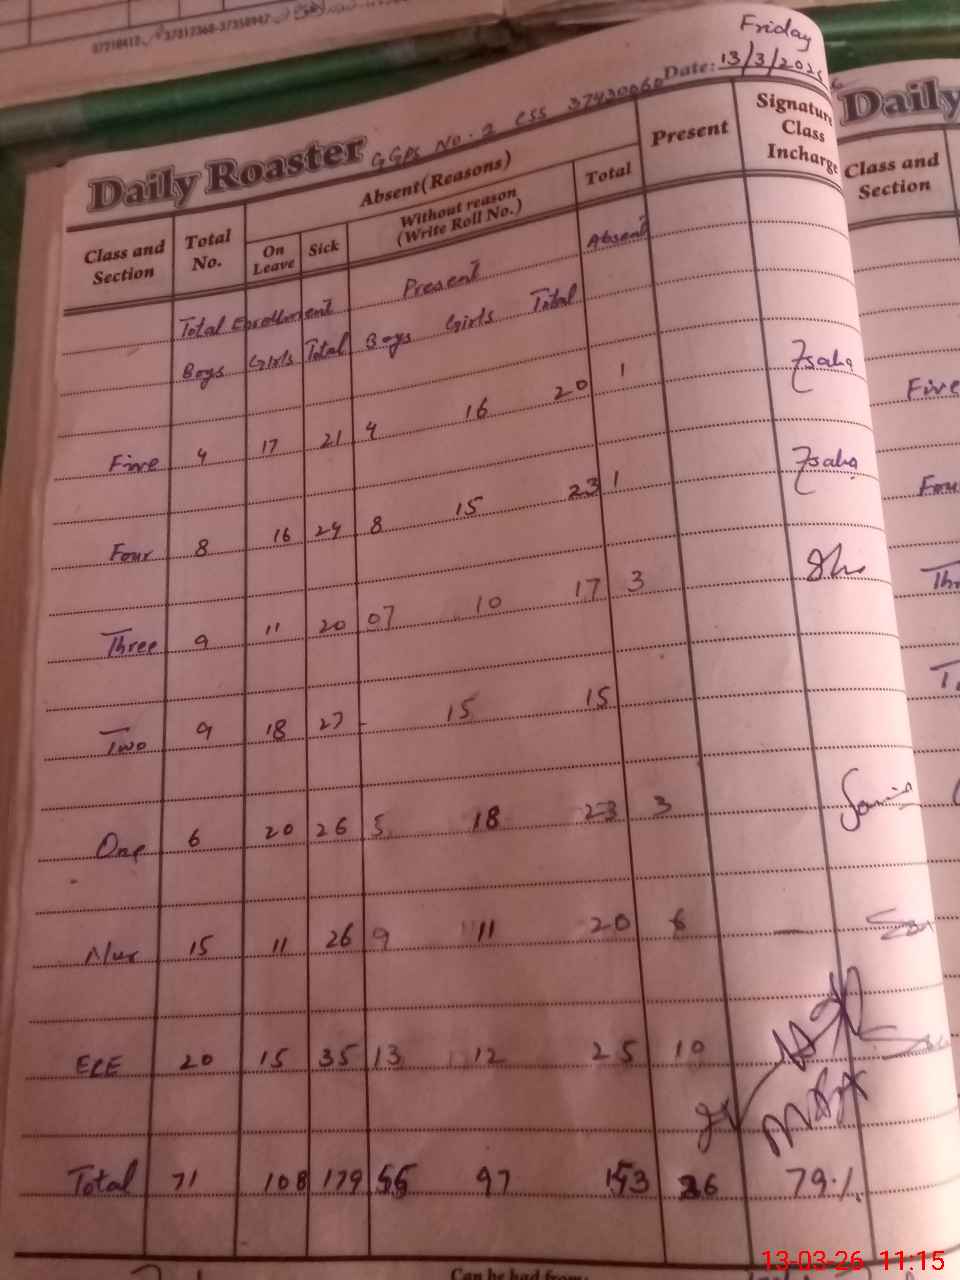 37218412 37312360-37350947
Friday
Date: 13/3/2026
Daily Roaster GGPS No. 2 CSS 37430060
Class and Section
Total No.
Absent (Reasons)
On Leave
Sick
Without reason (Write Roll No.)
Total
Present
Signature Class Incharge
Total Enrollment Present Absent
Boys Girls Total Boys Girls Total
Five 4 17 21 4 16 20 1
Four 8 16 24 8 15 23 1
Three 9 11 20 07 10 17 3
Two 9 18 27 - 15 15
One 6 20 26 5 18 23 3
Nur 15 11 26 9 11 20 6 —
ECE 20 15 35 13 12 25 10
Total 71 108 179 55 97 153 26 79%
Can be had from:
Daily
Class and Section
Five
Four
13-03-26 11:15